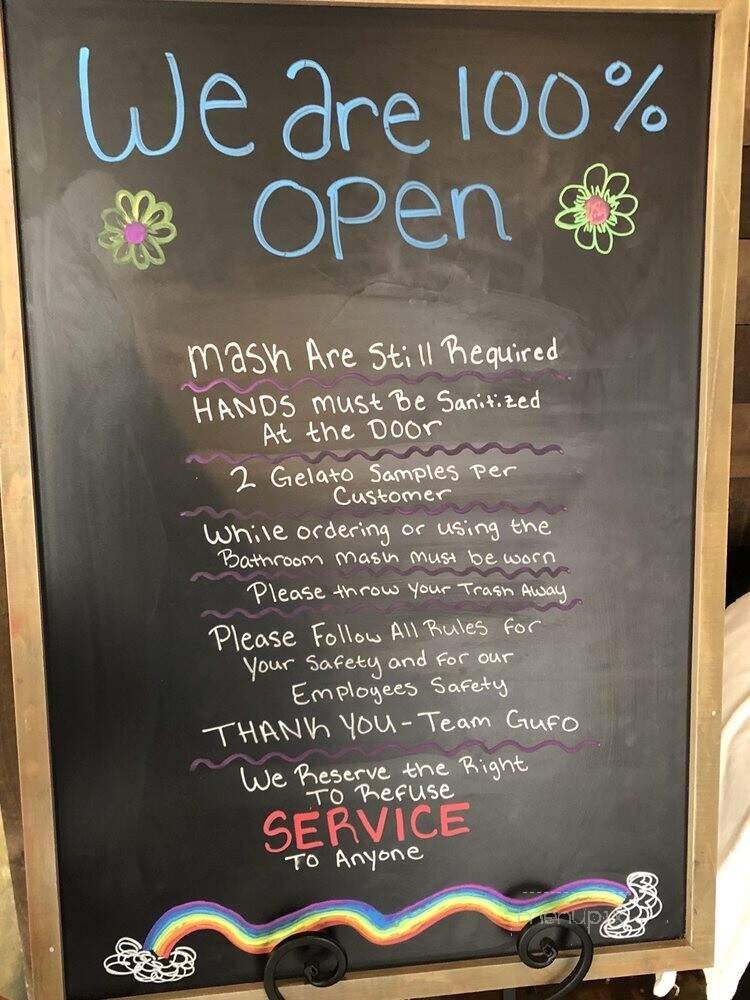 We are 100%
open
Mask Are Still Required
HANDS must Be Sanitized
At the Door
2 Gelato Samples Per
Customer
While ordering or using the
Bathroom Mask Must be worn
Please throw Your Trash Away
Please Follow All Rules for
Your Safety and For our
Employees Safety
THANK YOU - Team Gufo
We Reserve the Right
TO Refuse
SERVICE
To Anyone